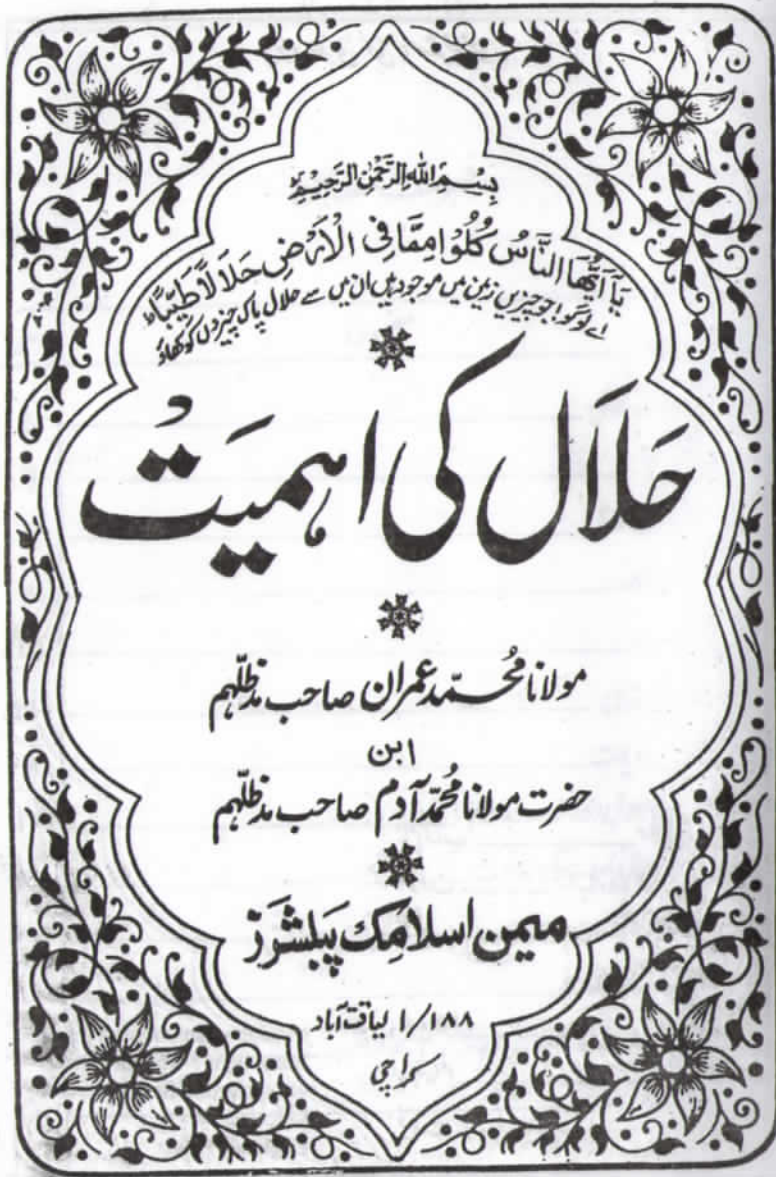 بِسْمِ اللهِ الرَّحْمٰنِ الرَّحِيْمِ
يَا اَيُّهَا النَّاسُ كُلُوْا مِمَّا فِی الْاَرْضِ حَلَالًا طَيِّبًا
اے لوگو! جو چیزیں زمین میں موجود ہیں ان میں سے حلال پاک چیزوں کو کھاؤ
حَلَال کی اہمیَت
مولانا مُحمّد عمران صاحب مدظلّہم
ابن
حضرت مولانا مُحمّد آدم صاحب مدظلّہم
میمن اسلامک پبلشرَز
۱۸۸/۱ لیاقت آباد
کراچی